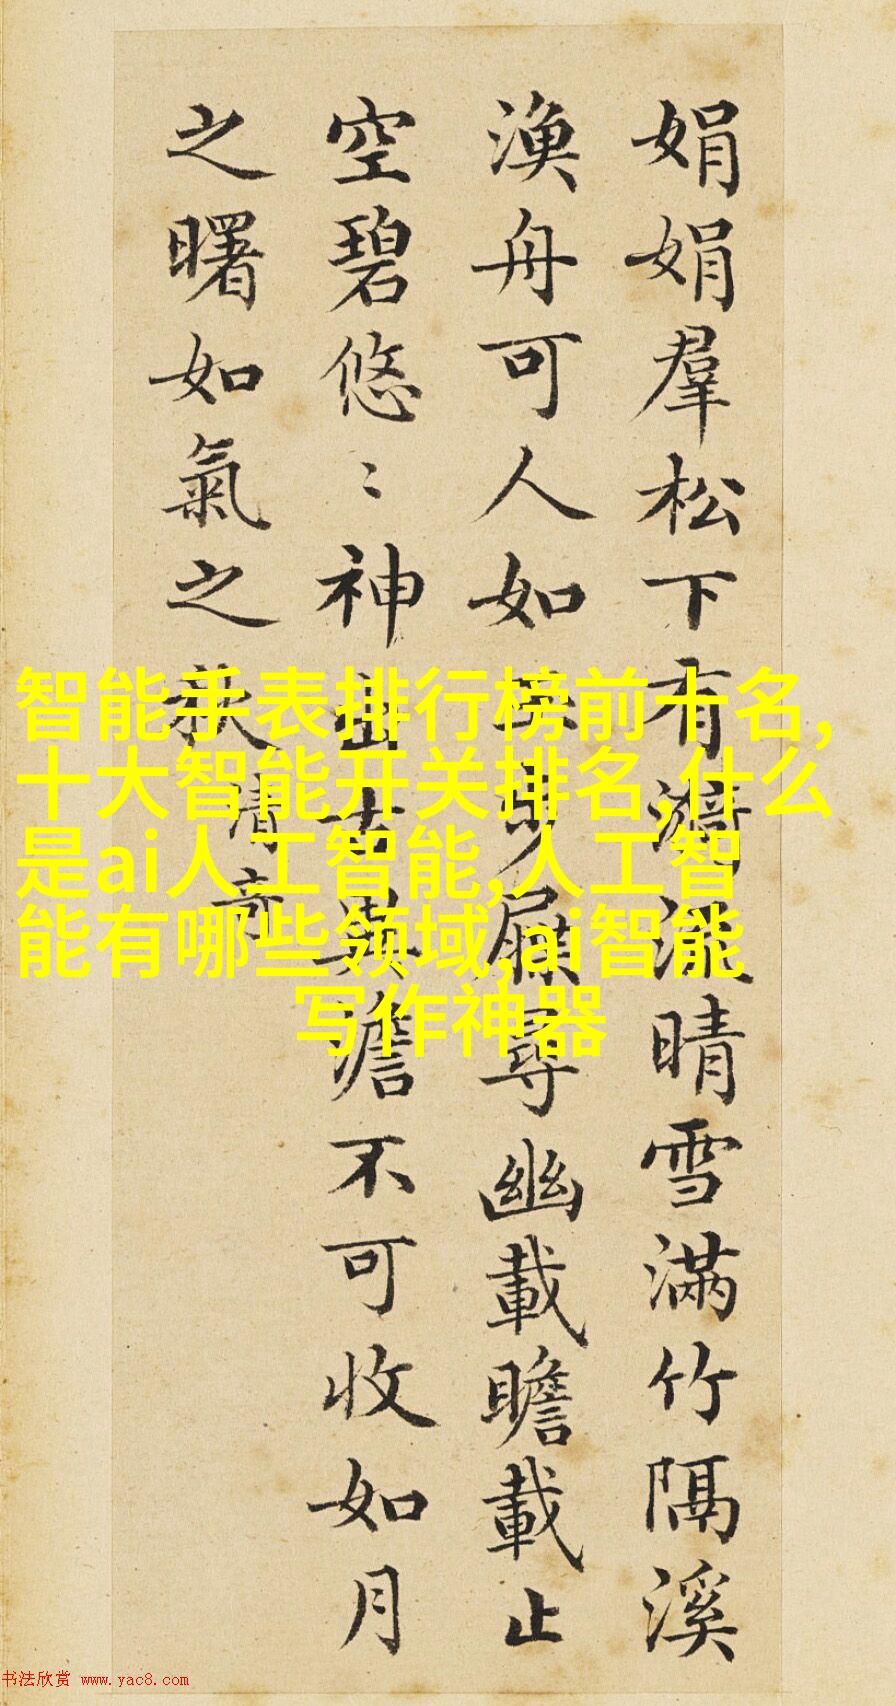 娟娟羣松下有漪流晴雪滿竹隔溪
漁舟可人如玉步屧尋幽載瞻載止
空碧悠〻神出古異澹不可收如月
之曙如氣之秋清奇
智能手表排行榜前十名,
十大智能开关排名,什么
是ai人工智能,人工智
能有哪些领域,ai智能
写作神器
书法欣赏 www.yac8.com